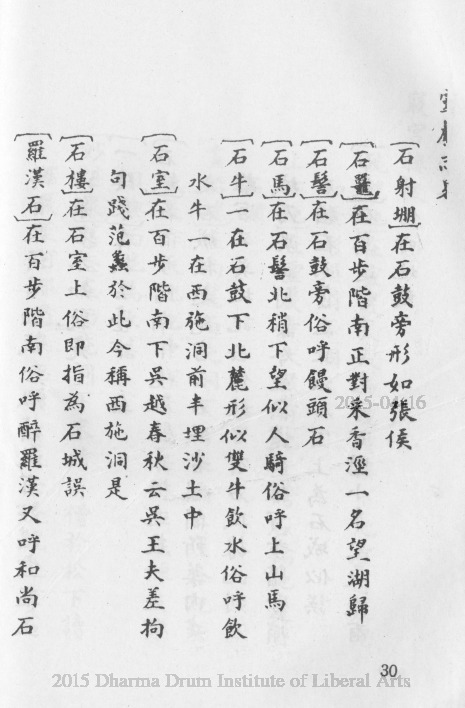 〔石射堋〕在石鼓旁形如張侯
〔石鼉〕在百步階南正對采香涇一名望湖歸
〔石髻〕在石鼓旁俗呼饅頭石
〔石馬〕在石髻北稍下望似人騎俗呼上山馬
〔石牛〕一在石鼓下北麓形似雙牛飲水俗呼飲
水牛一在西施洞前半埋沙土中
〔石室〕在百步階南下吳越春秋云吳王夫差拘
句踐范蠡於此今稱西施洞是
〔石樓〕在石室上俗即指為石城誤
〔羅漢石〕在百步階南俗呼醉羅漢又呼和尚石
2015-04-16
30
2015 Dharma Drum Institute of Liberal Arts